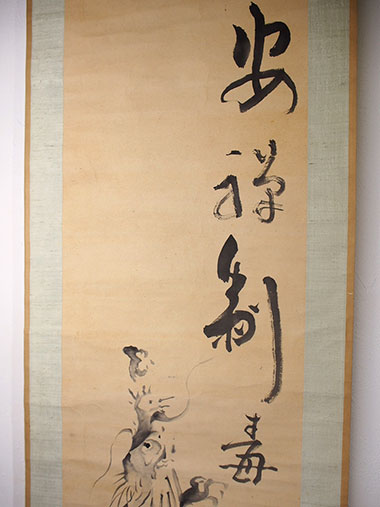 安禅制毒